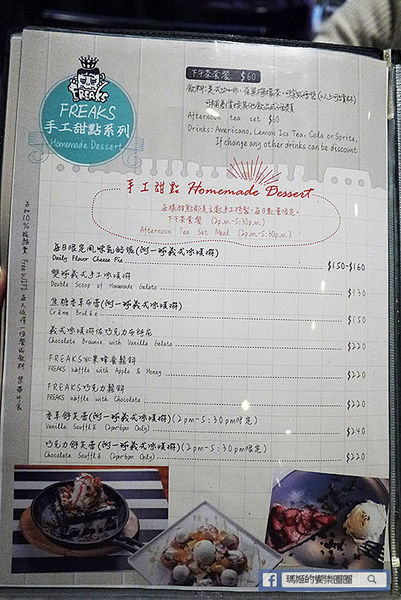 FREAKS
FREAKS
手工甜點系列
Homemade Dessert
下午茶套餐 $60
Afternoon tea set $60
Drinks: Americano, Lemon Ice Tea, Cola or Sprite,
If change any other drinks can be discount
手工甜點 Homemade Dessert
下午茶套餐 (2p.m.-5:30p.m.)
Afternoon Tea Set Meal (2p.m.-5:30p.m.)
Daily Flavor Cheese Pie
$150-$160
雙球義式手工冰淇淋
Double Scoop of Homemade Gelato
$130
焦糖香草布蕾(附一球義式冰淇淋)
Crème Brulée
$150
Chocolate Brownie with Vanilla Gelato
$220
FREAKS水果蜂蜜鬆餅
FREAKS Waffle with Apple & Honey
$220
FREAKS巧克力鬆餅
FREAKS Waffle with Chocolate
$220
香草舒芙蕾(附一球義式冰淇淋)(2pm-5:30pm限定)
Vanilla Soufflé (2pm-5pm Only)
$240
巧克力舒芙蕾(附一球義式冰淇淋)(2pm-5:30pm限定)
Chocolate Soufflé (2pm-5pm Only)
$220
瑪姬的饗樂團團